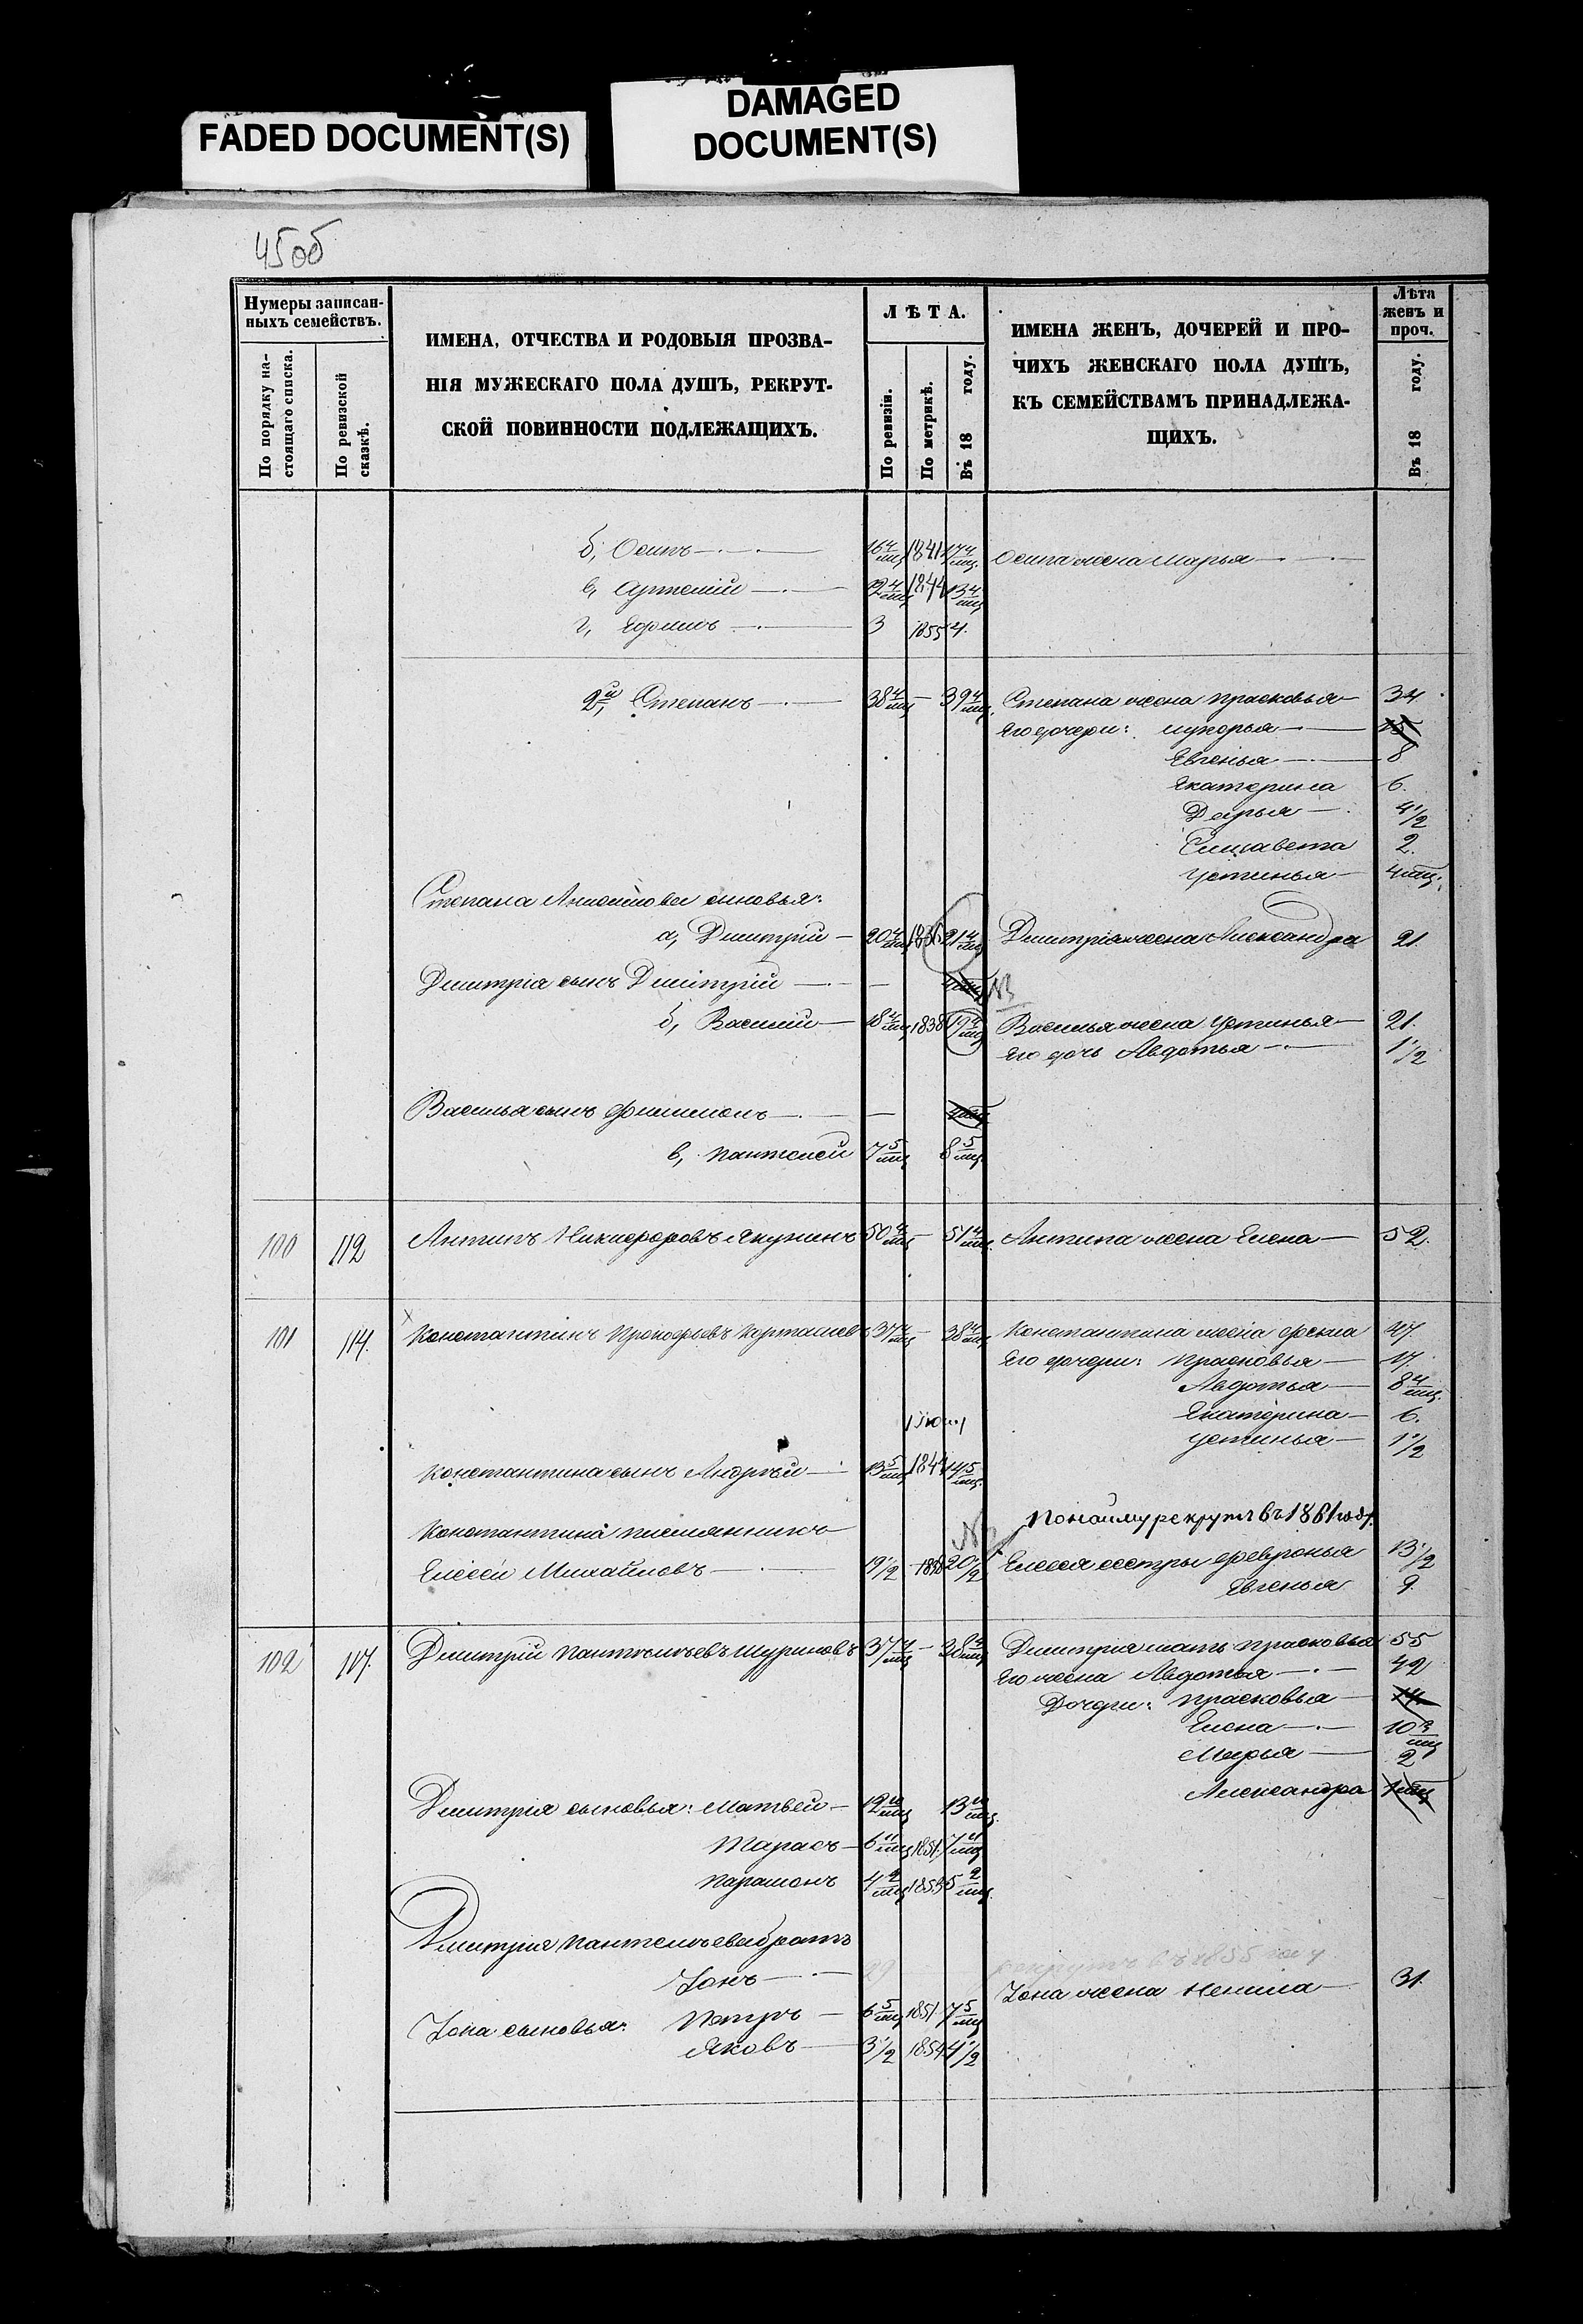 FADED DOCUMENT(S)
DAMAGED
DOCUMENT(S)
45об
Нумеры записан-
ныхъ семействъ.
По порядку на-
стоящаго списка.
По ревизской
сказкѣ.
ИМЕНА, ОТЧЕСТВА И РОДОВЫЯ ПРОЗВА-
НІЯ МУЖЕСКАГО ПОЛА ДУШЪ, РЕКРУТ-
СКОЙ ПОВИННОСТИ ПОДЛЕЖАЩИХЪ.
ЛѢТА.
По ревизіи.
По метрикѣ.
Въ 18 году.
ИМЕНА ЖЕНЪ, ДОЧЕРЕЙ И ПРО-
ЧИХЪ ЖЕНСКАГО ПОЛА ДУШЪ,
КЪ СЕМЕЙСТВАМЪ ПРИНАДЛЕЖА-
ЩИХЪ.
Лѣта
женъ и
проч.
Въ 18 году.
б, Осипъ 16 4/мц 1841 17 4/мц. Осипа жена Марья
в, Артемій 12 4/мц 1844 13 4/мц
г, Ефимъ 3 1855 4.
2й, Степанъ 38 4/мц — 39 4/мц. Степана жена Прасковья 34
Его дочери: Лукерья 15
Евгенья 8
Екатерина 6.
Дарья 4 1/2
Елисавета 2.
Устинья 4 мц.
Степана сыновья:
а, Дмитрій 20 4/мц 1836 21 4/мц Дмитрія жена Александра 21.
Дмитрія сынъ Дмитрій — NB
б, Василій 18 4/мц 1838 19 4/мц Василья жена Устинья 21.
Его дочь Авдотья 1 1/2
Василья сынъ Филимонъ —
в, Пантелей 7 5/мц 8 5/мц.
100 112 Антипъ Никифоровъ Якунинъ 50 4/мц — 51 4/мц. Антипа жена Елена 52.
101 114. Константинъ Прокофьевъ 37 4/мц — 38 4/мц Константина жена Фекла 47
Его дочери: Прасковья 17.
Авдотья 8 4/мц.
Екатерина 6.
Устинья 1 1/2
Константина сынъ Андрей 13 5/мц 1844 14 5/мц.
По найму рекрутъ въ 1861 году.
Константина племянникъ
Елисей Михайловъ 19 1/2 1838 20 1/2 Елисея сестры Февронья 13 1/2
Евгенья 9.
102 117. Дмитрій Пантелѣевъ Шуриновъ 37 4/мц — 38 Дмитрія мать Прасковья 55
Его жена Авдотья 42
Дочери: Прасковья 14.
Елена 10
Марья 2
Александра
Дмитрія сыновья: Матвей 12 13
Тарасъ 6 11/мц 1851. 7 11/мц
Парамонъ 4 2/мц 1853 5 2/мц.
Дмитрія Пантелѣева братъ
Іонъ 29 рекрутъ въ 1855 году.
Іона жена Ненила 31.
Іона сыновья: Петръ 6 5/мц 1851. 7 5/мц
Яковъ 3 1/2 1854 4 1/2